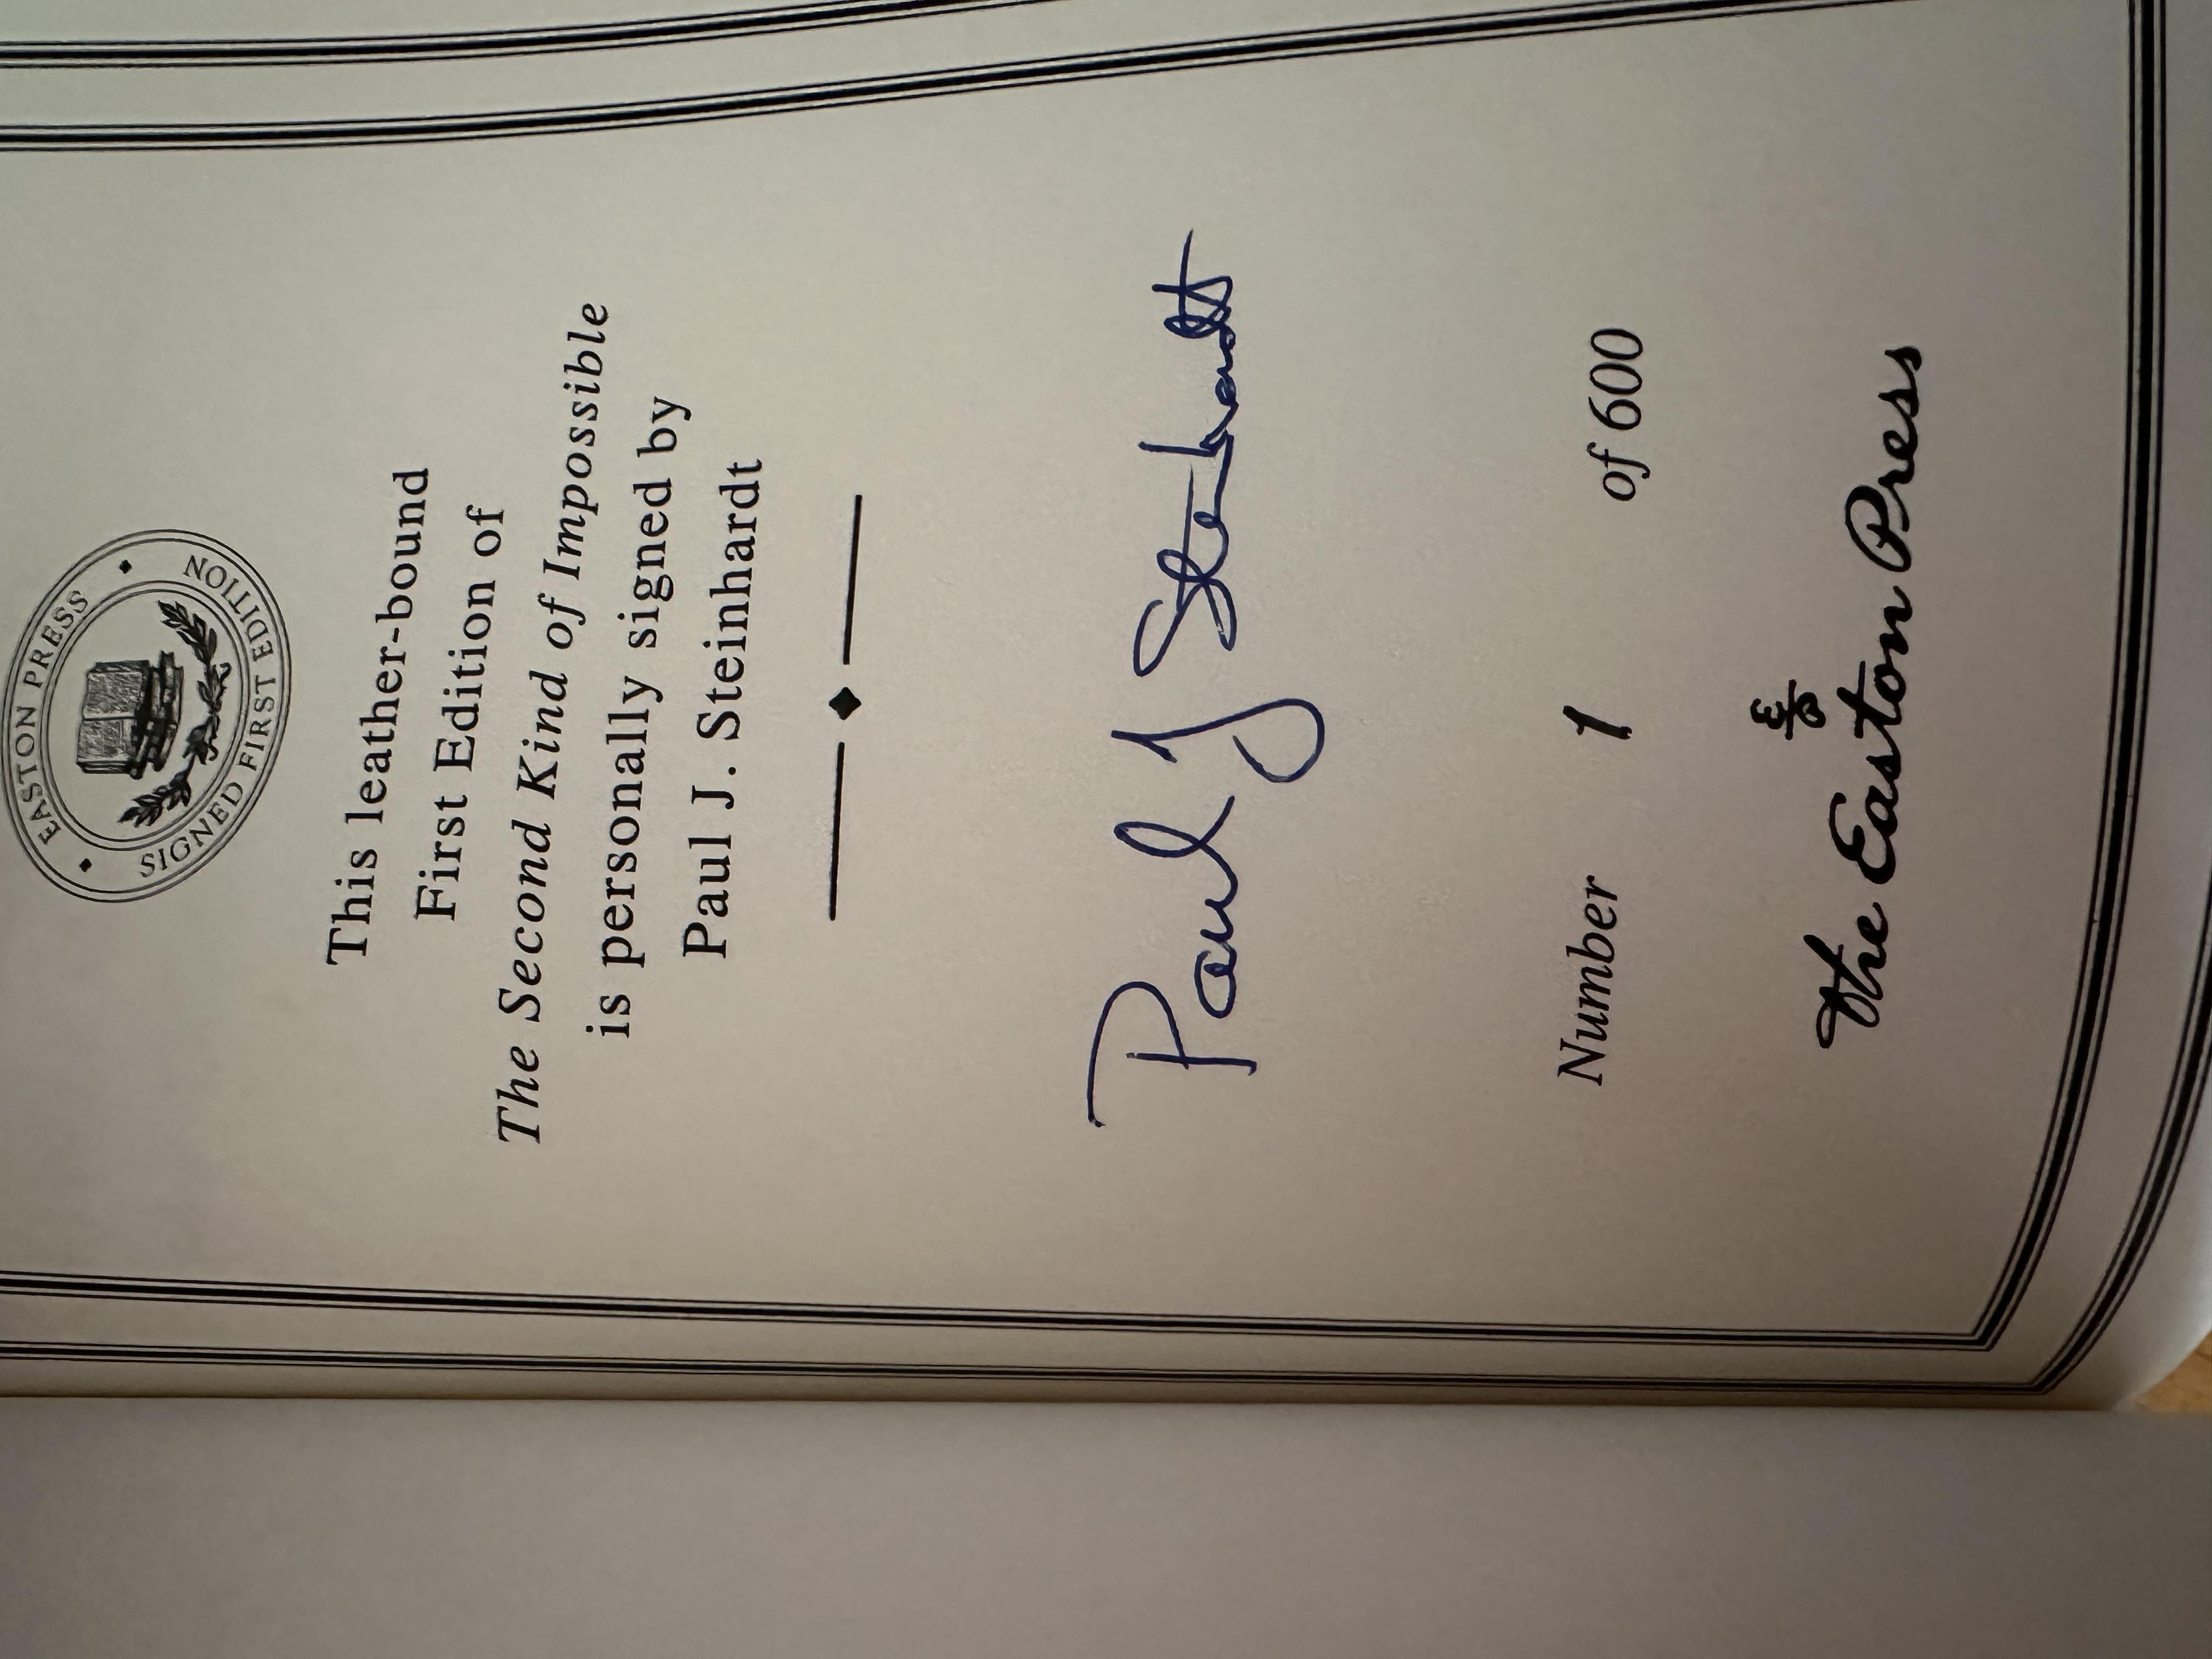 EASTON PRESS
SIGNED FIRST EDITION
This leather-bound
First Edition of
The Second Kind of Impossible
is personally signed by
Paul J. Steinhardt
Paul J Steinhardt
Number 1 of 600
The Easton Press